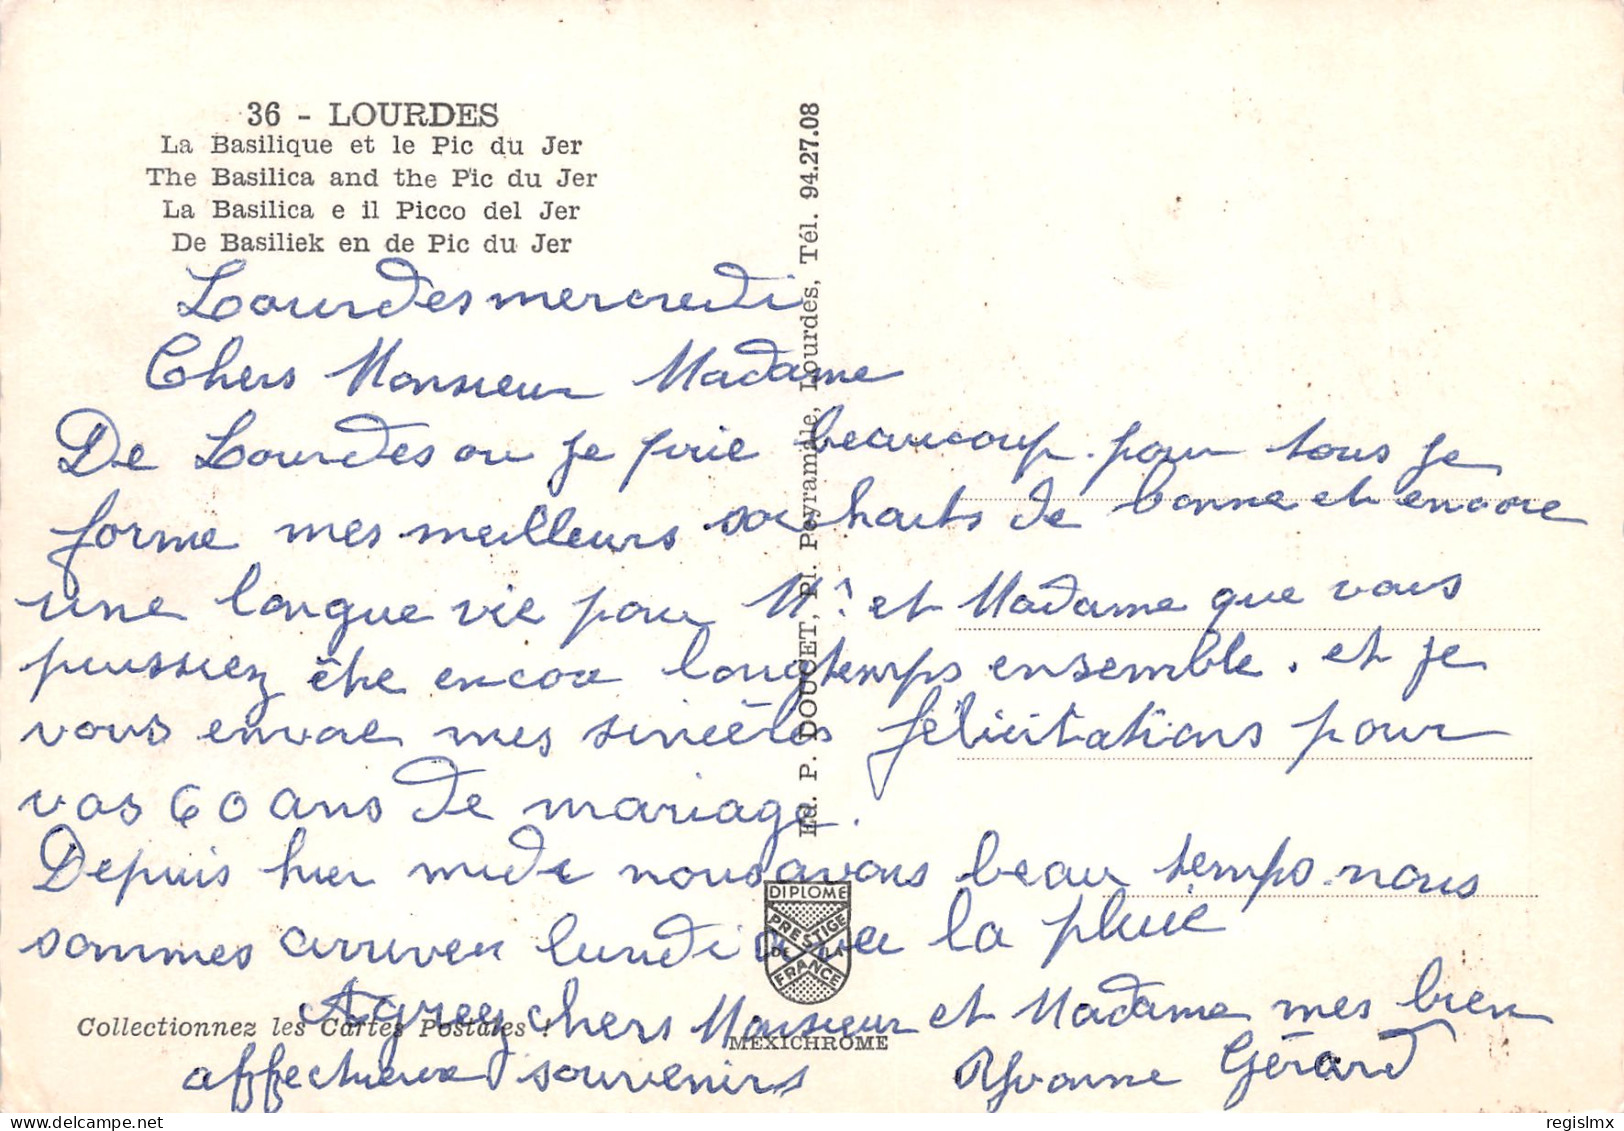 36 - LOURDES
La Basilique et le Pic du Jer
The Basilica and the Pic du Jer
La Basilica e il Picco del Jer
De Basiliek en de Pic du Jer
Lourdes mercredi
Chers Monsieur Madame
De Lourdes ou je prie beaucoup. pour tous je
forme mes meilleurs souhaits de bonne et encore
une longue vie pour Mr et Madame que vous
puissiez être encore longtemps ensemble. et je
vous envoie mes sincères félicitations pour
vos 60 ans de mariage.
Depuis hier midi nous avons beau temps. nous
sommes arriver lundi avec la pluie
Agreez chers Monsieur et Madame mes bien
affectueux souvenirs Yvonne Gérard
Ed. P. DOUCET, Pl. Peyramale, Lourdes, Tél. 94.27.08
DIPLOME
PRESTIGE
DE LA
FRANCE
Collectionnez les Cartes Postales !
MEXICHROME
regislmx